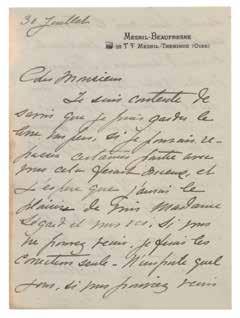 30 Juillet
MESNIL-BEAUFRESNE
PAR T. F. MESNIL-THERIBUS (OISE)
Cher Monsieur
Je suis contente de
savoir que je puis garder le
livre un peu, si je pouvais re-
certaines parties avec
vous cela serait mieux, et
j'espère que j'aurai le
plaisir de Madame
Segard et vous ici, si vous
ne pouvez venir, je ferai les
corrections seule - N'importe quel
jour, si vous pouviez venir